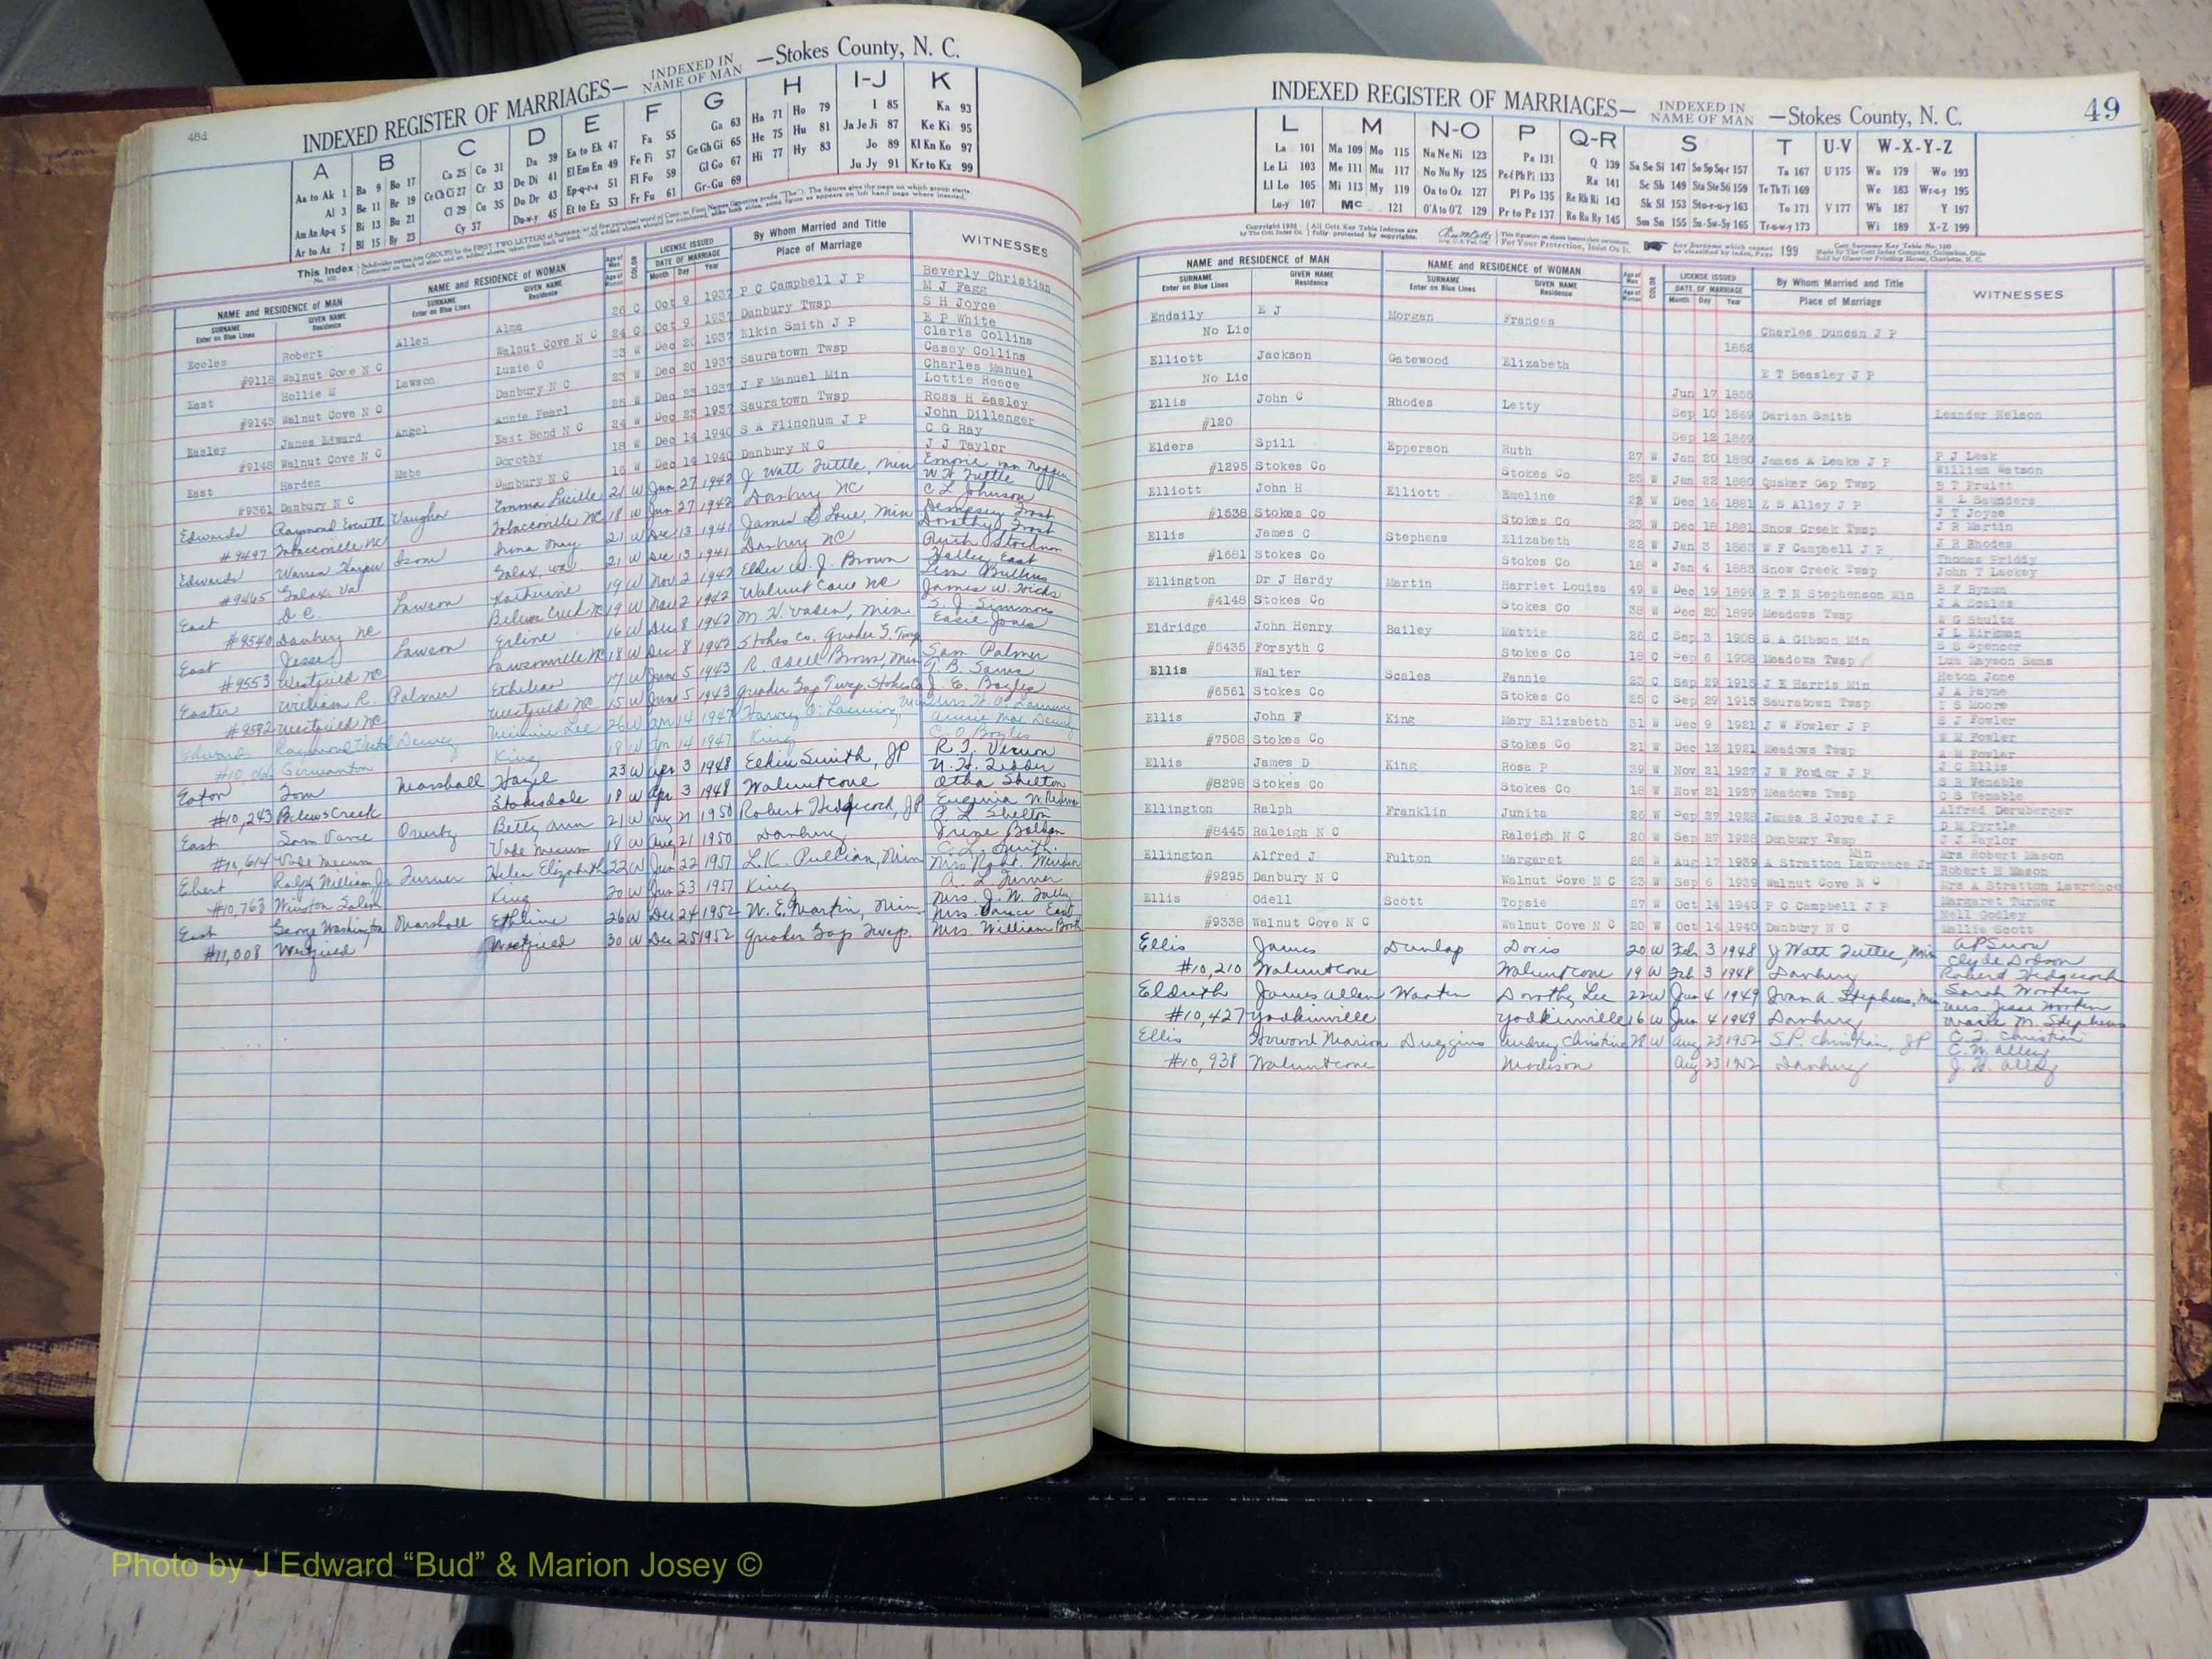 48d
INDEXED REGISTER OF MARRIAGES— INDEXED IN NAME OF MAN —Stokes County, N. C.
A B C D E F G H I-J K
Aa to Ak 1 Ba 9 Bo 17 Ca 25 Co 31 Da 39 Ea to Ek 47 Fa 55 Ga 63 Ha 71 Ho 79 I 85 Ka 93
Al 3 Be 11 Br 19 Ce Ch Ci 27 Cr 33 De Di 41 El Em En 49 Fe Fi 57 Ge Gh Gi 65 He 75 Hu 81 Ja Je Ji 87 Ke Ki 95
Am An Ap-q 5 Bi 13 Bu 21 Cl 29 Cu 35 Do Dr 43 Ep-q-r-s 51 Fl Fo 59 Gl Go 67 Hi 77 Hy 83 Jo 89 Kl Kn Ko 97
Ar to Az 7 Bl 15 By 23 Cy 37 Du-w-y 45 Et to Ez 53 Fr Fu 61 Gr-Gu 69 Ju Jy 91 Kr to Kz 99
This Index
NAME and RESIDENCE OF MAN NAME and RESIDENCE OF WOMAN COLOR LICENSE ISSUED By Whom Married and Title WITNESSES
SURNAME GIVEN NAME SURNAME GIVEN NAME DATE OF MARRIAGE Place of Marriage
Enter on Blue Lines Residence Enter on Blue Lines Residence Month Day Year
Eccles Robert Allen Alma 26 C Oct 9 1937 P C Campbell J P Beverly Christian
M J Fagg
#9118 Walnut Cove N C Walnut Cove N C 24 C Oct 9 1937 Danbury Twsp S H Joyce
East Hollie M Lawson Luzie O 23 W Dec 20 1937 Elkin Smith J P E P White
Claris Collins
#9145 Walnut Cove N C Danbury N C 23 W Dec 20 1937 Sauratown Twsp Casey Collins
Easley James Edward Angel Annie Pearl 25 W Dec 23 1937 J F Manuel Min Charles Manuel
Lottie Reece
#9148 Walnut Cove N C East Bend N C 24 W Dec 23 1937 Sauratown Twsp Ross H Easley
East Harden Mabe Dorothy 18 W Dec 14 1940 S A Flinchum J P John Dillenger
C G Ray
#9361 Danbury N C Danbury N C 16 W Dec 14 1940 Danbury N C J J Taylor
Edwards Raymond Everett Vaughn Emma Lucille 21 W Jun 27 1942 J Watt Tuttle, Min
W H Tuttle
#9497 Tobaccoville NC Tobaccoville NC 18 W Jun 27 1942 Danbury NC C L Johnson
Edwards Warren Harper Isom Irma May 21 W Dec 13 1941 James D Love, Min Dempsey Frost
Dorothy Frost
#9465 Galax, Va Galax, Va 21 W Dec 13 1941 Danbury NC Ruth Stockton
East D C. Lawson Katherine 19 W Nov 2 1942 Elder W. J. Brown Halley East
Lem Bullins
#9540 Danbury NC Belews Creek NC 19 W Nov 2 1942 Walnut Cove NC James W. Hicks
East Jesse Lawson Erline 16 W Dec 8 1942 M. V. Vaden, Min S. J. Simmons
Essie Jones
#9553 Westfield NC Lawsonville NC 18 W Dec 8 1942 Stokes Co. Quaker G. Twsp
Easter William R. Palmer Ethelene 17 W June 5 1943 R. Odell Brown, Min Sam Palmer
T. B. Sams
#9592 Westfield NC Westfield NC 15 W June 5 1943 Quaker Gap Twsp. Stokes Co J. E. Boyles
Edwards Dewey Minnie Lee 26 W Apr 14 1947
Annie Mae Dewey
Germanton King 18 W Apr 14 1947 King C. O. Boyles
Eaton Tom Marshall Hazel 23 W Apr 3 1948 Elkin Smith, JP R. J. Vernon
#10,243 Belews Creek Stokesdale 18 W Apr 3 1948 Walnut Cove Otha Shelton
East Sam Vance Betty Ann 21 W Aug 21 1950 Robert Hedgecock, JP
#10,614 Vade Mecum Vade Mecum 18 W Aug 21 1950 Danbury
Ebert Ralph William Jr Turner Helen Elizabeth 22 W Jun 22 1951 L.K. Pullian, Min C. L. Smith.
#10,763 Winston Salem King 20 W Jun 23 1951 King A. L. Turner
East George Washington Marshall Ethline 26 W Dec 24 1952 W. E. Martin, Min. Mrs. J. W. Tully
Mrs. Vance East
#11,008 Westfield Westfield 30 W Dec 25 1952 Quaker Gap Twsp. Mrs. William Booth
INDEXED REGISTER OF MARRIAGES— INDEXED IN NAME OF MAN —Stokes County, N. C. 49
L M N-O P Q-R S T U-V W-X-Y-Z
La 101 Ma 109 Mo 115 Na Ne Ni 123 Pa 131 Q 139 Sa Se Si 147 So Sp Sq-r 157 Ta 167 U 175 Wa 179 Wo 193
Le Li 103 Me 111 Mu 117 No Nu Ny 125 Pe-f Ph Pi 133 Ra 141 Sc Sh 149 Sta Ste Sti 159 Te Th Ti 169 We 183 Wr-u-y 195
Ll Lo 105 Mi 113 My 119 Oa to Oz 127 Pl Po 135 Re Rh Ri 143 Sk Sl 153 Sto-r-u-y 163 To 171 V 177 Wh 187 Y 197
Lu-y 107 Mc 121 O'A to O'Z 129 Pr to Pz 137 Ro Ru Ry 145 Sm Sn 155 Su-Sw-Sy 165 Tr-u-w-y 173 Wi 189 X-Z 199
NAME and RESIDENCE OF MAN NAME and RESIDENCE OF WOMAN COLOR LICENSE ISSUED By Whom Married and Title WITNESSES
SURNAME GIVEN NAME SURNAME GIVEN NAME DATE OF MARRIAGE Place of Marriage
Enter on Blue Lines Residence Enter on Blue Lines Residence Month Day Year
Endaily E J Morgan Frances
No Lic 1852 Charles Duncan J P
Elliott Jackson Gatewood Elizabeth
No Lic Jun 17 1855 E T Beasley J P
Ellis John C Rhodes Letty Sep 10 1869 Darian Smith Leander Nelson
#120 Sep 12 1869
Elders Spill Epperson Ruth 27 W Jan 20 1880 James A Leake J P P J Leak
William Watson
#1295 Stokes Co Stokes Co 25 W Jan 22 1880 Quaker Gap Twsp B T Pruitt
Elliott John H Elliott Emeline 22 W Dec 16 1881 Z S Alley J P W L Saunders
J T Joyce
#1538 Stokes Co Stokes Co 23 W Dec 18 1881 Snow Creek Twsp J R Martin
Ellis James C Stephens Elizabeth 22 W Jan 3 1883 W F Campbell J P J R Rhodes
Thomas Priddy
#1681 Stokes Co Stokes Co 18 W Jan 4 1883 Snow Creek Twsp John T Lackey
Ellington Dr J Hardy Martin Harriet Louisa 49 W Dec 19 1899 R T N Stephenson Min B F Bynum
J A Scales
#4148 Stokes Co Stokes Co 38 W Dec 20 1899 Meadows Twsp W G Shultz
Eldridge John Henry Bailey Mattie 26 C Sep 3 1908 S A Gibson Min J L Kirkman
S S Spencer
#5435 Forsyth C Stokes Co 18 C Sep 6 1908 Meadows Twsp Lum Mayson Sams
Ellis Walter Scales Fannie 23 C Sep 29 1915 J E Harris Min Heton Jone
J A Payne
#6561 Stokes Co Stokes Co 25 C Sep 29 1915 Sauratown Twsp I S Moore
Ellis John F King Mary Elizabeth 31 W Dec 9 1921 J W Fowler J P S J Fowler
W M Fowler
#7508 Stokes Co Stokes Co 21 W Dec 12 1921 Meadows Twsp A M Fowler
Ellis James D King Rosa P 39 W Nov 21 1927 J W Fowler J P J C Ellis
S R Venable
#8298 Stokes Co Stokes Co 18 W Nov 21 1927 Meadows Twsp C S Venable
Ellington Ralph Franklin Junita 26 W Sep 27 1928 James B Joyce J P Alfred Dernberger
D M Pyrtle
#8445 Raleigh N C Raleigh N C 20 W Sep 27 1928 Danbury Twsp J J Taylor
Ellington Alfred J Fulton Margaret 28 W Aug 17 1939 A Stratton Lawrence Jr Min Mrs Robert Mason
Robert H Mason
#9295 Danbury N C Walnut Cove N C 23 W Sep 6 1939 Walnut Cove N C Mrs A Stratton Lawrence
Ellis Odell Scott Topsie 27 W Oct 14 1940 P C Campbell J P Margaret Turner
Nell Godley
#9338 Walnut Cove N C Walnut Cove N C 20 W Oct 14 1940 Danbury N C Mallie Scott
Ellis James Dunlap Doris 20 W Feb 3 1948 J Watt Tuttle, Min A P Snow
Clyde Dodson
#10,210 Walnut Cove Walnut Cove 19 W Feb 3 1948 Danbury Robert Hedgecock
Eldreth James Allen Wooten Dorothy Lee 22 W Jun 4 1949 Ivan A. Stephens, Min Sarah Wooten
Mrs. Jesse Wooten
#10,427 Yadkinville Yadkinville 16 W Jun 4 1949 Danbury M. Stephens
Ellis Howard Marion Duggins Audrey Christine 28 W Aug 23 1952 S.P. Christian, JP C. J. Christian
C. W. Alley
#10,938 Walnut Cove Madison Aug 23 1952 Danbury J. H. Alley
Photo by J Edward “Bud” & Marion Josey ©